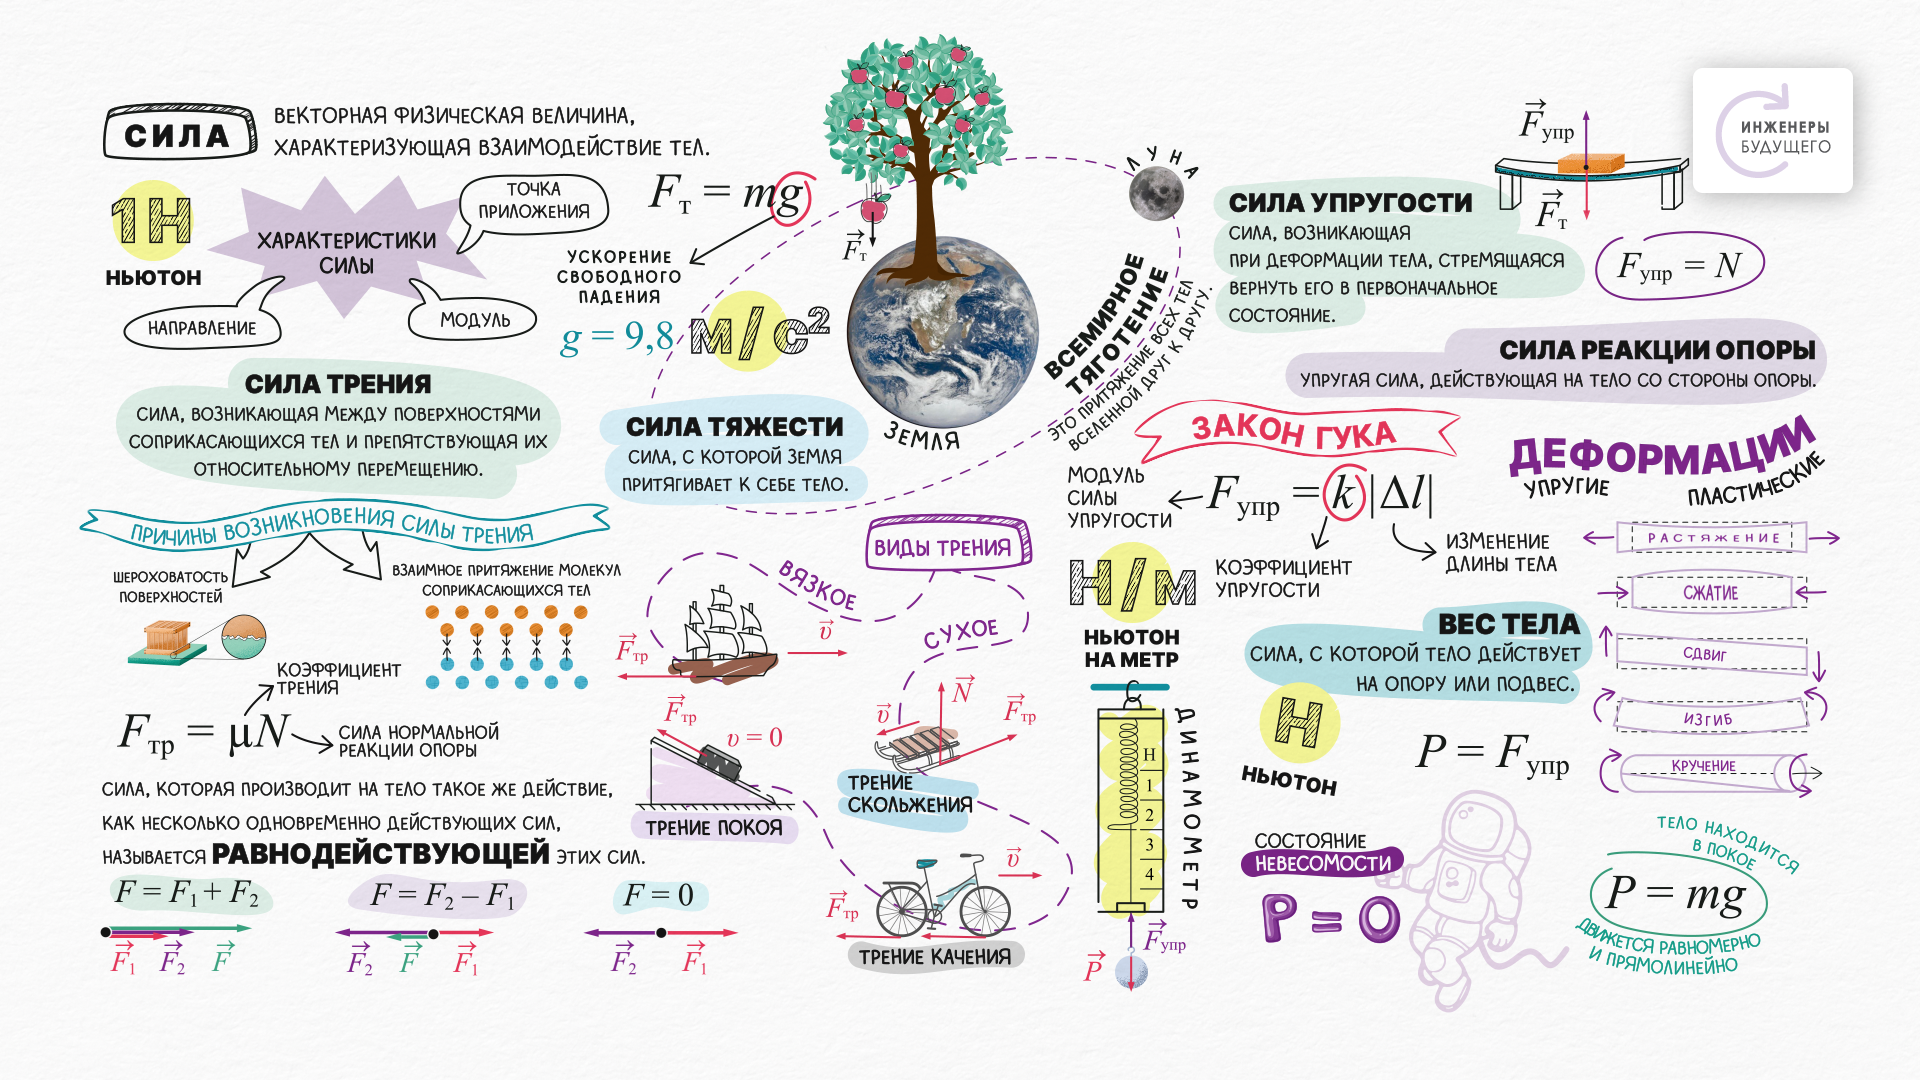 СИЛА
ВЕКТОРНАЯ ФИЗИЧЕСКАЯ ВЕЛИЧИНА,
ХАРАКТЕРИЗУЮЩАЯ ВЗАИМОДЕЙСТВИЕ ТЕЛ.
1Н
НЬЮТОН
ХАРАКТЕРИСТИКИ
СИЛЫ
ТОЧКА
ПРИЛОЖЕНИЯ
НАПРАВЛЕНИЕ
МОДУЛЬ
Fт = mg
УСКОРЕНИЕ
СВОБОДНОГО
ПАДЕНИЯ
g = 9,8 м/с²
F⃗т
ЗЕМЛЯ
ЛУНА
ВСЕМИРНОЕ
ТЯГОТЕНИЕ
ЭТО ПРИТЯЖЕНИЕ ВСЕХ ТЕЛ
ВСЕЛЕННОЙ ДРУГ К ДРУГУ.
СИЛА ТЯЖЕСТИ
СИЛА, С КОТОРОЙ ЗЕМЛЯ
ПРИТЯГИВАЕТ К СЕБЕ ТЕЛО.
СИЛА ТРЕНИЯ
СИЛА, ВОЗНИКАЮЩАЯ МЕЖДУ ПОВЕРХНОСТЯМИ
СОПРИКАСАЮЩИХСЯ ТЕЛ И ПРЕПЯТСТВУЮЩАЯ ИХ
ОТНОСИТЕЛЬНОМУ ПЕРЕМЕЩЕНИЮ.
ПРИЧИНЫ ВОЗНИКНОВЕНИЯ СИЛЫ ТРЕНИЯ
ШЕРОХОВАТОСТЬ
ПОВЕРХНОСТЕЙ
ВЗАИМНОЕ ПРИТЯЖЕНИЕ МОЛЕКУЛ
СОПРИКАСАЮЩИХСЯ ТЕЛ
КОЭФФИЦИЕНТ
ТРЕНИЯ
Fтр = μN
СИЛА НОРМАЛЬНОЙ
РЕАКЦИИ ОПОРЫ
СИЛА, КОТОРАЯ ПРОИЗВОДИТ НА ТЕЛО ТАКОЕ ЖЕ ДЕЙСТВИЕ,
КАК НЕСКОЛЬКО ОДНОВРЕМЕННО ДЕЙСТВУЮЩИХ СИЛ,
НАЗЫВАЕТСЯ РАВНОДЕЙСТВУЮЩЕЙ ЭТИХ СИЛ.
F = F₁ + F₂
F⃗₁ F⃗₂ F⃗
F = F₂ – F₁
F⃗₂ F⃗ F⃗₁
F = 0
F⃗₂ F⃗₁
ВИДЫ ТРЕНИЯ
ВЯЗКОЕ
СУХОЕ
F⃗тр
υ⃗
F⃗тр
υ = 0
ТРЕНИЕ ПОКОЯ
υ⃗
N⃗
F⃗тр
ТРЕНИЕ
СКОЛЬЖЕНИЯ
υ⃗
F⃗тр
ТРЕНИЕ КАЧЕНИЯ
СИЛА УПРУГОСТИ
СИЛА, ВОЗНИКАЮЩАЯ
ПРИ ДЕФОРМАЦИИ ТЕЛА, СТРЕМЯЩАЯСЯ
ВЕРНУТЬ ЕГО В ПЕРВОНАЧАЛЬНОЕ
СОСТОЯНИЕ.
F⃗упр
F⃗т
Fупр = N
ИНЖЕНЕРЫ
БУДУЩЕГО
СИЛА РЕАКЦИИ ОПОРЫ
УПРУГАЯ СИЛА, ДЕЙСТВУЮЩАЯ НА ТЕЛО СО СТОРОНЫ ОПОРЫ.
ЗАКОН ГУКА
МОДУЛЬ
СИЛЫ
УПРУГОСТИ
Fупр = k|Δl|
КОЭФФИЦИЕНТ
УПРУГОСТИ
ИЗМЕНЕНИЕ
ДЛИНЫ ТЕЛА
Н/м
НЬЮТОН
НА МЕТР
ДИНАМОМЕТР
Н
1
2
3
4
F⃗упр
P⃗
ВЕС ТЕЛА
СИЛА, С КОТОРОЙ ТЕЛО ДЕЙСТВУЕТ
НА ОПОРУ ИЛИ ПОДВЕС.
Н
НЬЮТОН
P = Fупр
СОСТОЯНИЕ
НЕВЕСОМОСТИ
P = 0
ДЕФОРМАЦИИ
УПРУГИЕ
ПЛАСТИЧЕСКИЕ
РАСТЯЖЕНИЕ
СЖАТИЕ
СДВИГ
ИЗГИБ
КРУЧЕНИЕ
ТЕЛО НАХОДИТСЯ
В ПОКОЕ
P = mg
ДВИЖЕТСЯ РАВНОМЕРНО
И ПРЯМОЛИНЕЙНО